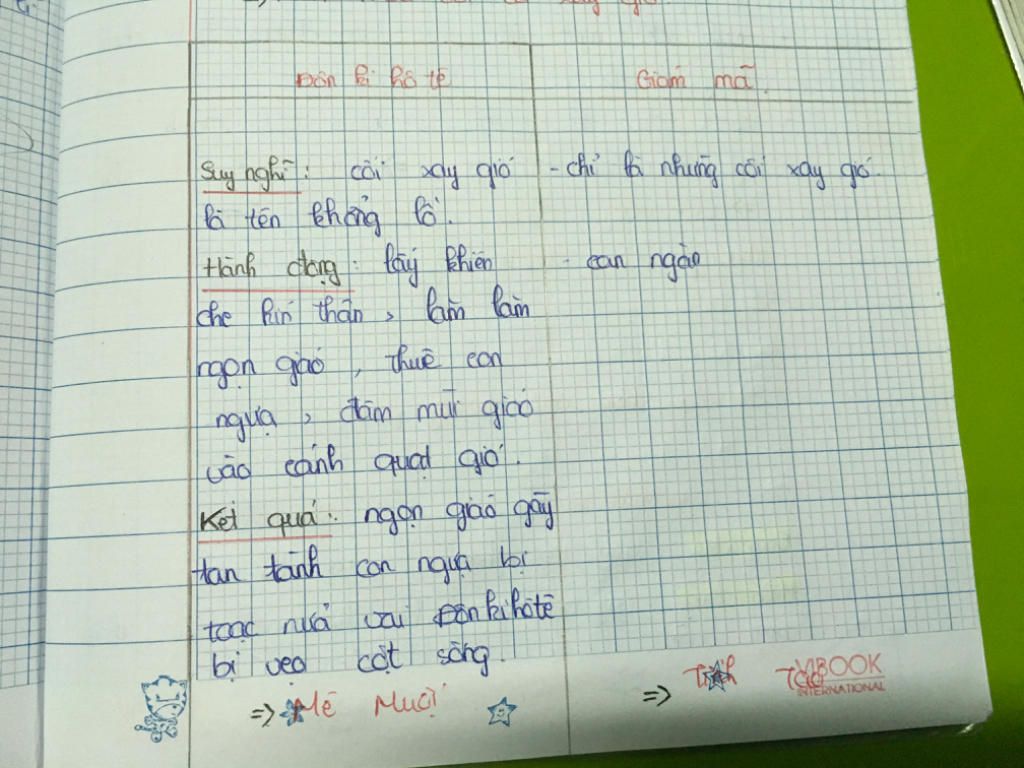 xay gió
Đôn ki hô tê Giám mã.
Suy nghĩ: cối xay gió - chỉ là những cối xay gió.
là tên khổng lồ.
Hành động: lấy khiên - can ngăn
che kín thân, lăm lăm
ngọn giáo, thuê con
ngựa, đâm mũi giáo
vào cánh quạt gió.
Kết quả: ngọn giáo gãy
tan tành con ngựa bị
toạc nửa vai Đôn ki hô tê
bị vẹo cột sống.
=> Mê Muội => Tỉnh Táo
VIBOOK
INTERNATIONAL